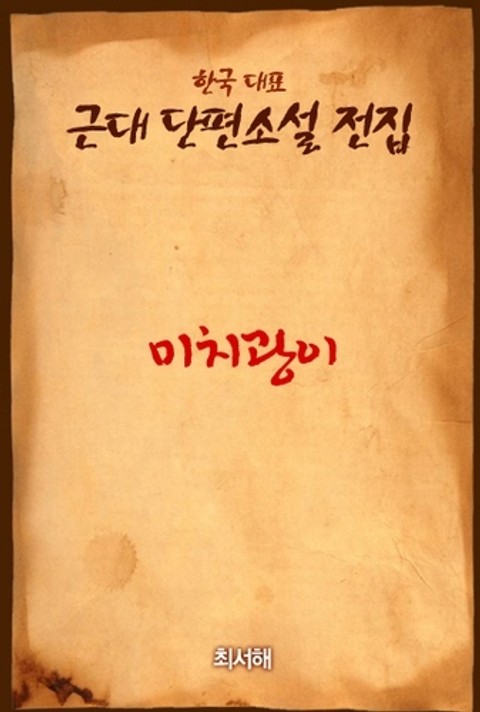 한국 대표
근대 단편소설 전집
미치광이
최서해